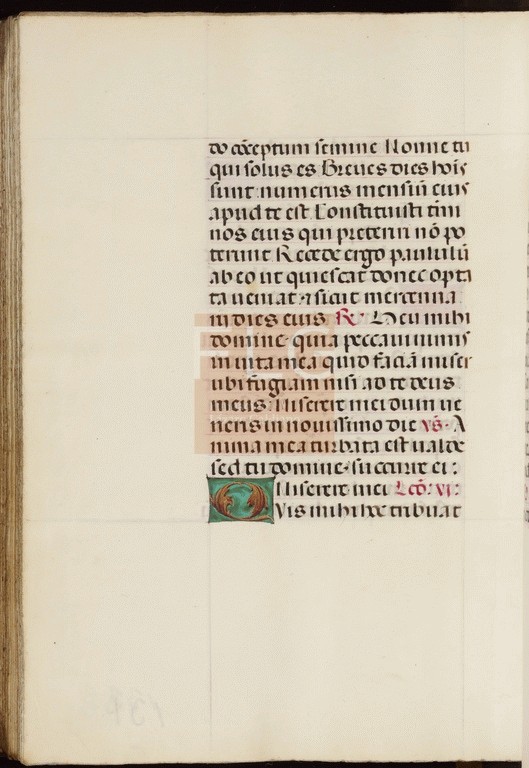 do cōceptum semine Nonne tu
qui solus es Breues dies hoīs
sunt: numerus mensiū eius
apud te est. Constituisti tmi
nos eius qui preteriri nō po
terunt Recede ergo paululū
ab eo ut quiescat donec opta
ta ueniat ⁊ sicut mercenna
rii dies eius ℟. Heu mihi
domine quia peccaui nimis
in uita mea quid faciā miser
ubi fugiam nisi ad te deus
meus: Miserere mei dum ue
neris in nouissimo die ℣s. A
nima mea turbata est ualde
sed tu domine succurre ei:
Miserere mei Lcō. vi.
QVis mihi hoc tribuat
FLG